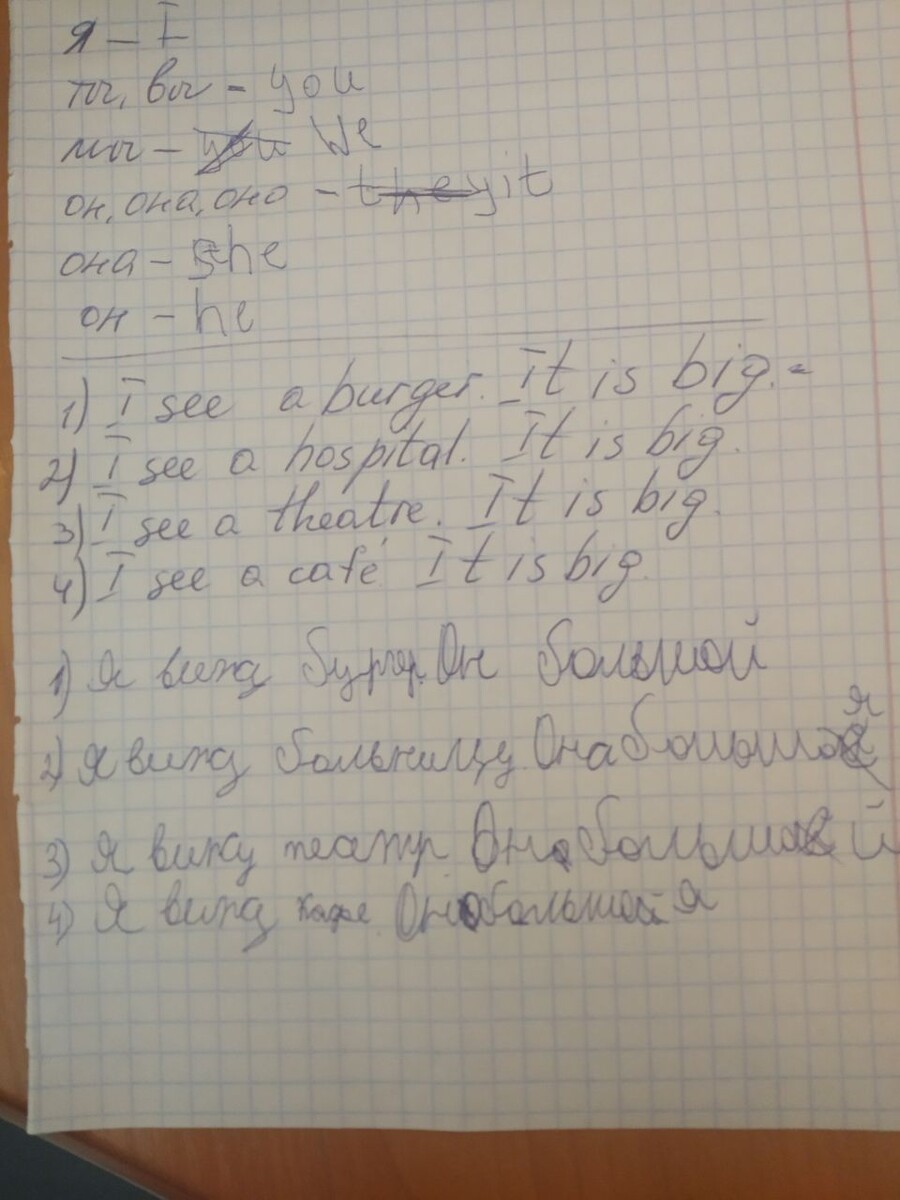 я – I
ты, вы – you
мы – you We
он, она, оно – they it
она – she
он – he
1) I see a burger. It is big.
2) I see a hospital. It is big.
3) I see a theatre. It is big.
4) I see a café It is big.
1) Я вижу Он большой
2) Я вижу больницу Она большая
3) Я вижу театр Он большой
4) Я вижу кафе